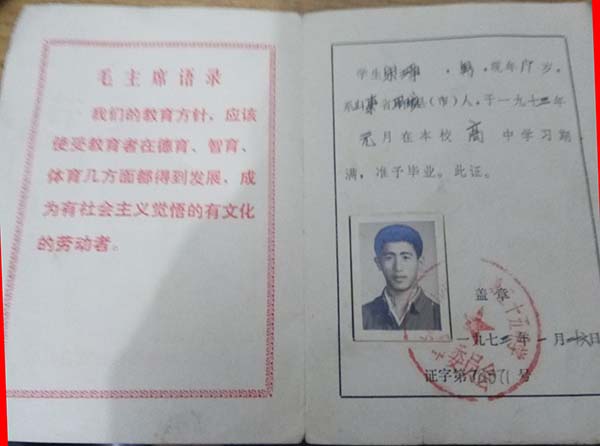 毛主席语录
我们的教育方针，应该
使受教育者在德育、智育、
体育几方面都得到发展，成
为有社会主义觉悟的有文化
的劳动者。
学生 ，男，现年 岁，
系山东省 （市）人，于一九七三年
元月在本校高中学习期
满，准予毕业。此证。
盖章
一九七三年一月 日
证字第 号